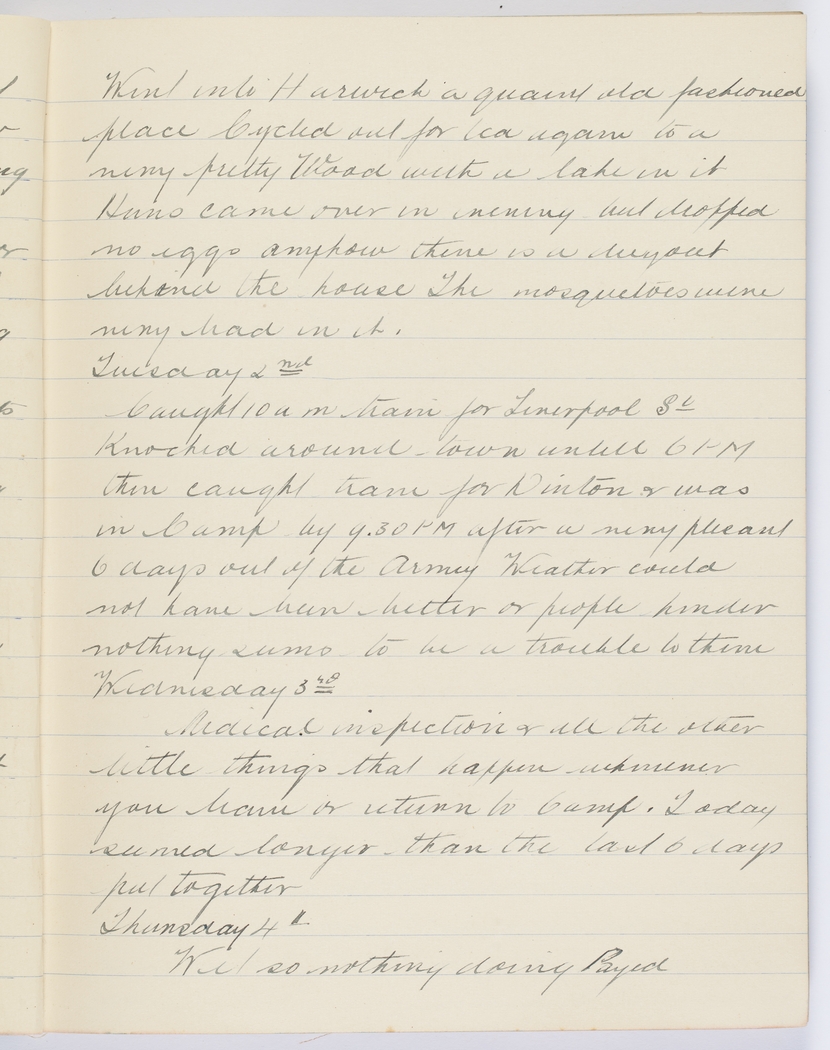 Went into Harwich a quaint old fashioned
place Cycled out for tea again to a
very pretty Wood with a lake in it
Huns came over in evening but dropped
no eggs anyhow there is a dugout
behind the house The mosquetoes were
very bad in it.
Tuesday 2nd
Caught 10 a m train for Liverpool St
Knocked around town untill 6 PM
then caught train for Dinton & was
in Camp by 9.30 PM after a very plesant
6 days out of the Army Weather could
not have been better or people kinder
nothing sems to be a trouble to them
Wednesday 3rd
Medical inspection & all the other
little things that happen whenever
you leave or return to Camp. Today
seemed longer than the last 6 days
put together
Thursday 4th
Wet so nothing doing Payed